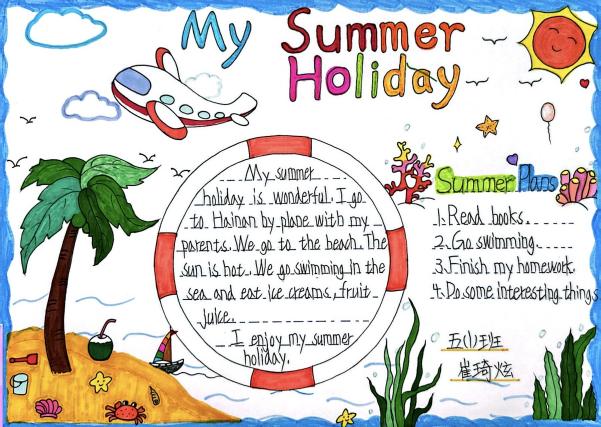 My Summer
Holiday
My summer
holiday is wonderful. I go
to Hainan by plane with my
parents. We go to the beach. The
sun is hot. We go swimming in the
sea and eat ice creams, fruit
juice.
I enjoy my summer
holiday.
Summer Plans
1. Read books.
2. Go swimming.
3. Finish my homework.
4. Do some interesting things
五(1)班
崔琦炫